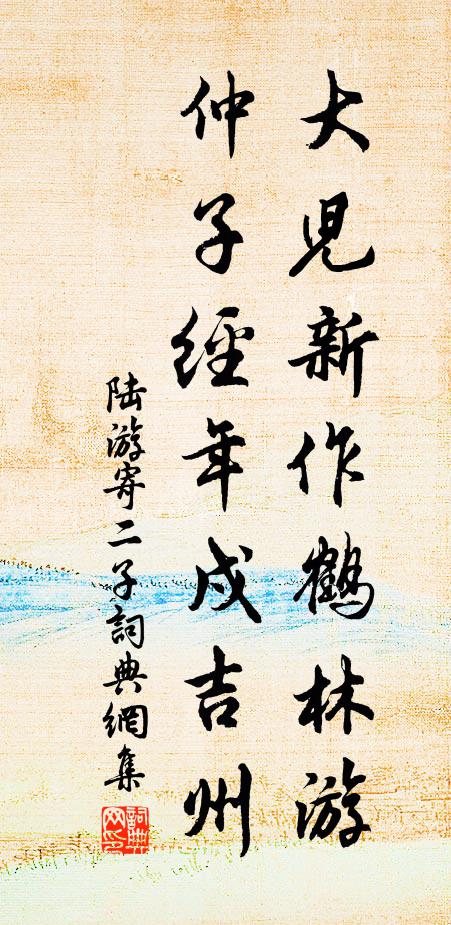 大兒新作鶴林游
仲子經年戍吉州
陆游寄二子詞典網集
詞典网印